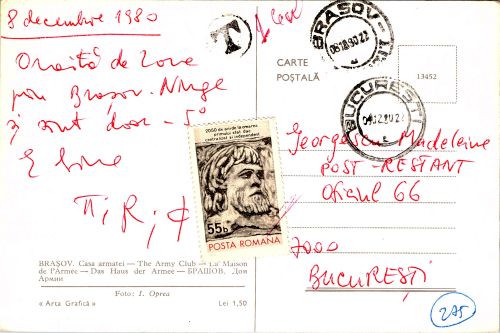 8 decembrie 1980
O vizită de zore
prin Brașov. Ninge
și sunt doar -5°
E bine
T
BRAȘOV
08.12.80.22
CARTE
POȘTALĂ
13452
BUCUREȘTI
2050 de ani de la crearea
primului stat dac
centralizat și independent
55b
POSTA ROMANA
Georgescu Madeleine
POST-RESTANT
Oficiul 66
7000
BUCUREȘTI
BRAȘOV. Casa armatei — The Army Club — La Maison
de l'Armée — Das Haus der Armee — БРАШОВ. Дом
Армии
Foto: I. Oprea
« Arta Grafică »
Lei 1,50
275